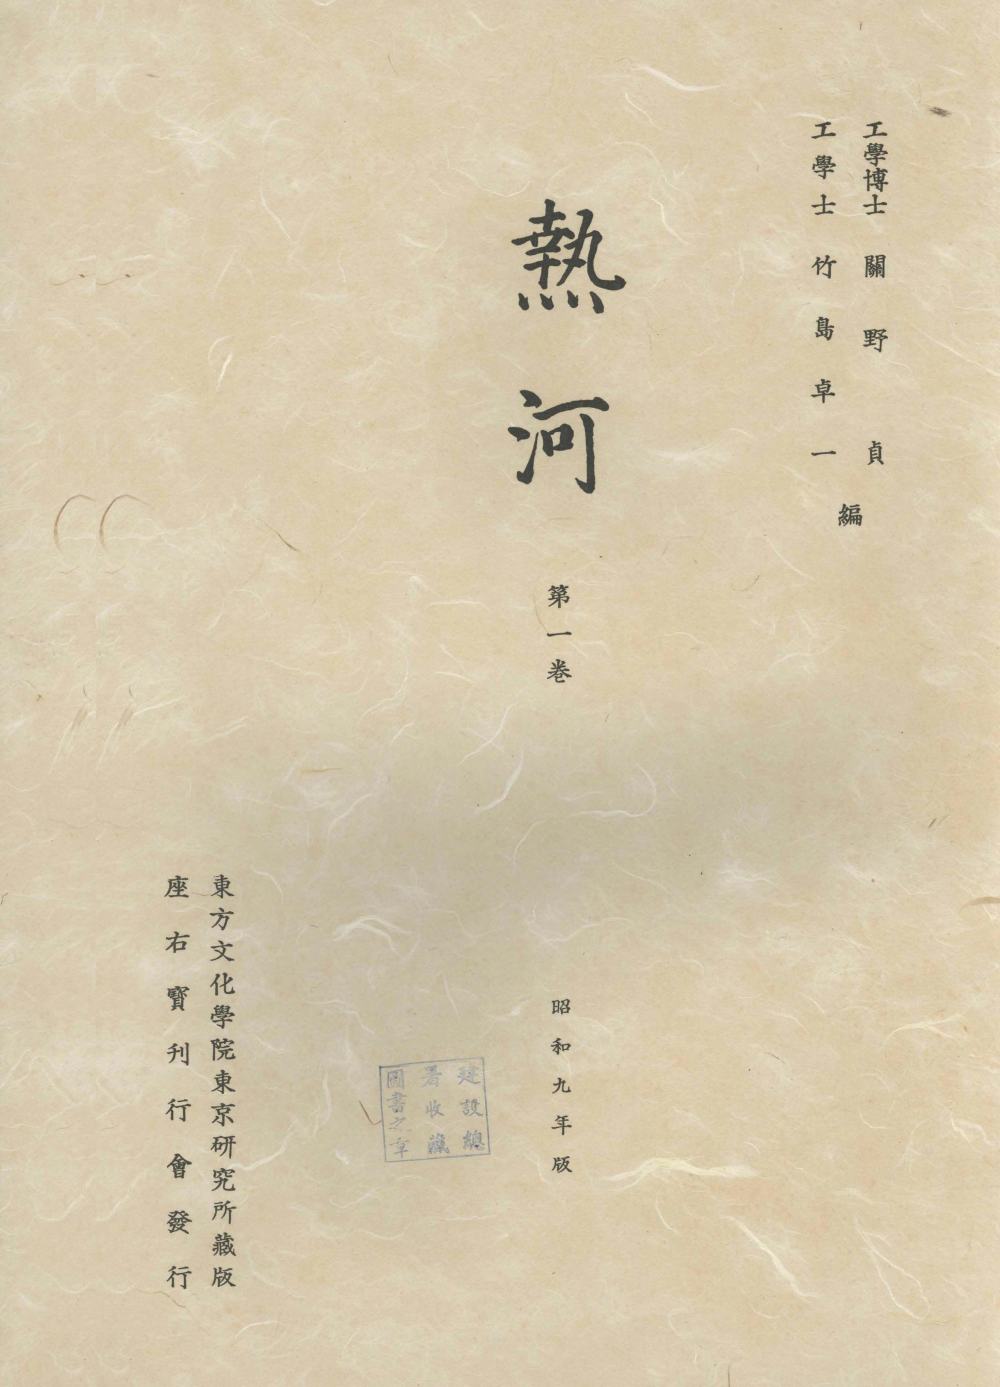 工學博士 關野貞
工學士 竹島卓一
編
熱河
第一卷
昭和九年版
建設總
署收藏
圖書之章
東方文化學院東京研究所藏版
座右寶刊行會發行